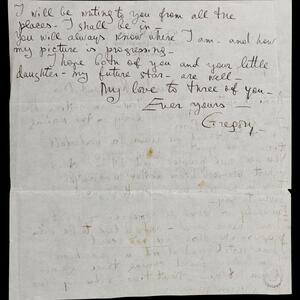 I will be writing to you from all the
places - I shall be in -
You will always know where I am - and how
my picture is progressing -
I hope both of you and your little
daughter - my future star - are well -
My love to three of you -
Ever yours -
Gregory -